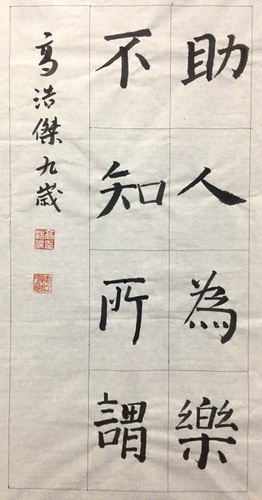 助人為樂
不知所謂
高浩傑九歲